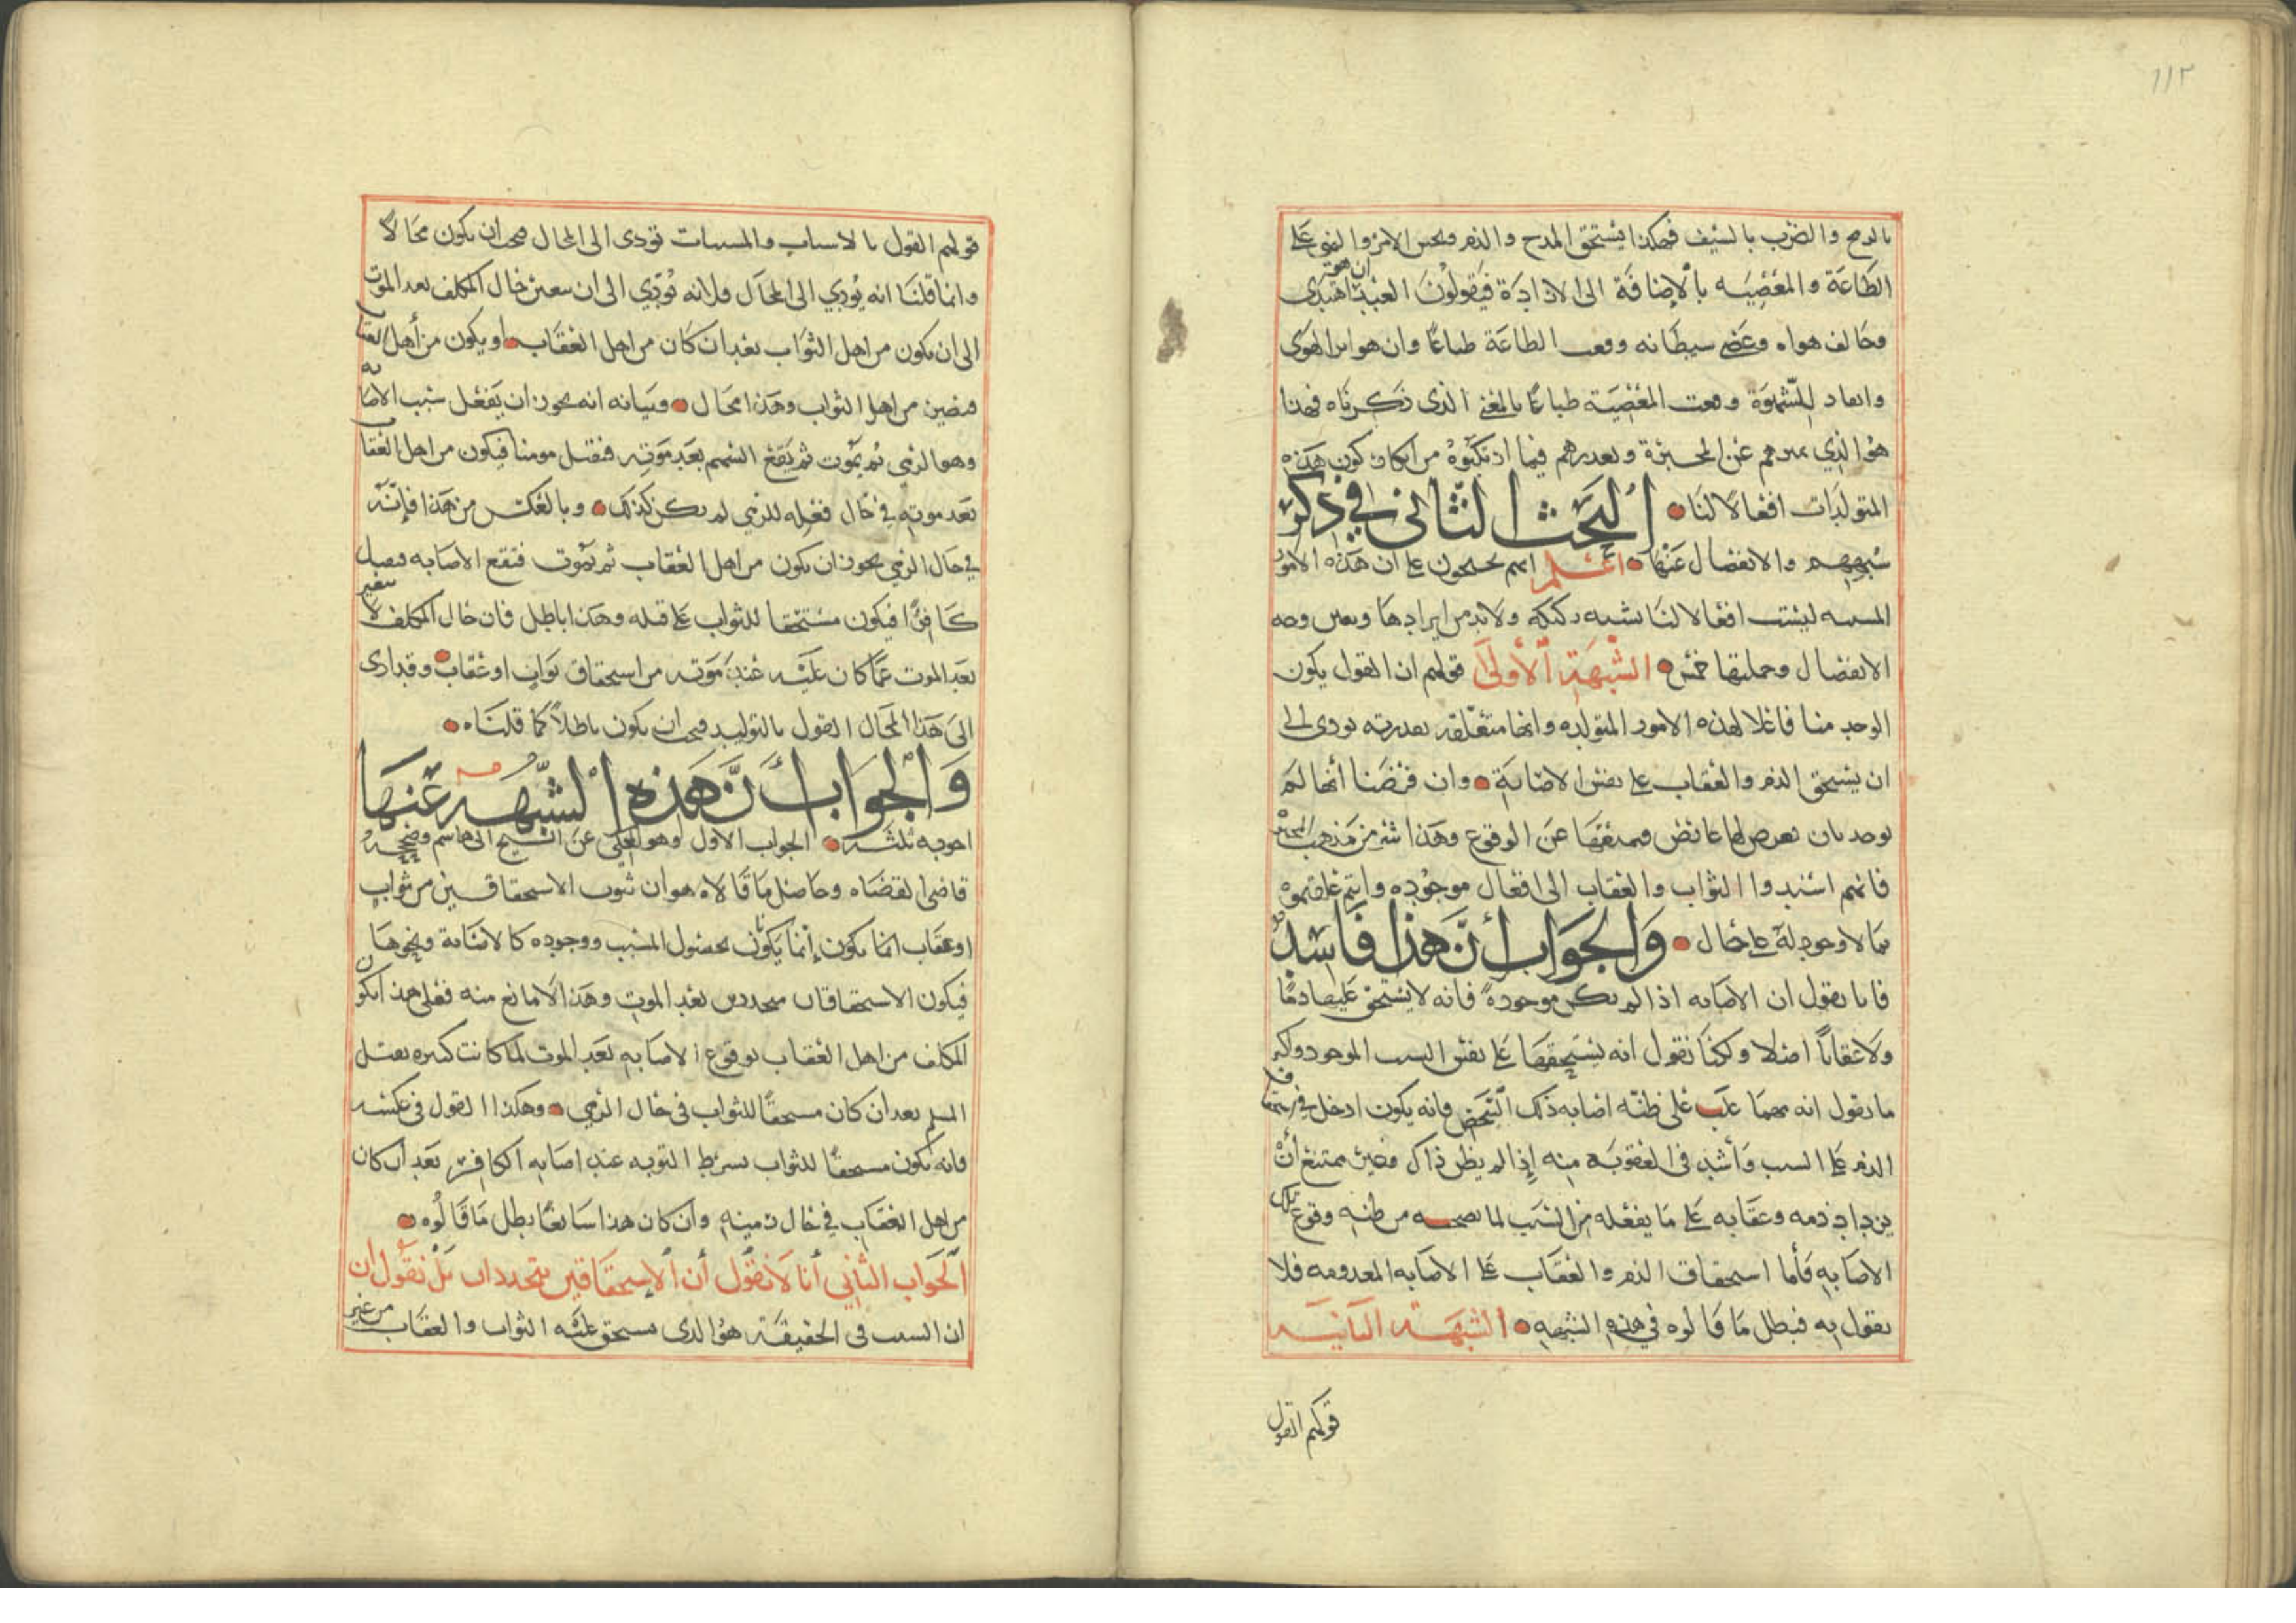 ١١٢
بالرمح والضرب بالسيف فهكذا يستحق المدح والذم ويحسن الامر والنهي على
الطاعة والمعصيه بالإضافة الى الارادة فيقولون العبد ان هو اهتدى
وخالف هواه وعصى سيطانه وقعت الطاعة طباعًا وان هو اثر الهوى
وانعاد للشهوة وقعت المعصية طباعًا بالمعنى الذي ذكرناه فهذا
هو الذي يميزهم عن المجبرة وبعدهم فيما ارتكبوه من انكار كون هذه
المتولدات افعالا لنا البحث الثاني في ذكر
شبههم والانفصال عنها اعلم انهم يحتجون على ان هذه الامور
المسببه ليست افعالا لنا بشبه ركيكه ولابد من ايرادها ونعين وجه
الانفصال وجملتها خمس الشبهة الأولى قولهم ان القول بكون
الوحد منا فاعلا لهذه الامور المتولده وانها متعلقه بقدرته يودى الى
ان يستحق الذم والعقاب على نفس الاصابة وان فرضنا أنها لم
توجد بان يعرض لها عارض فيمنعها عن الوقوع وهذا شر من مذهب المجبرة
فانهم اسندوا الثواب والعقاب الى افعال موجوده وانتم علقتموه
بما لا وجود له على حال والجواب أن هذا فاسد
فانا نقول ان الاصابه اذا لم يكن موجودة فانه لا يستحق عليها ذمًا
ولا عقابًا اصلا ولكنا نقول انه يستحقها على نفس السبب الموجود ولكن
ما نقول انه مهما غلب على ظنه اصابه ذلك الشخص فانه يكون ادخل في استحقاق
الذم على السبب وأشد في العقوبة منه إذا لم يظن ذاك وغير ممتنع أن
يزداد ذمه وعقابه على ما يفعله من السبب لما يصحبه من ظنه وقوع تلك
الاصابه فأما استحقاق الذم والعقاب على الاصابه المعدومه فلا
نقول به فبطل ما قالوه في هذه الشبهه الشبهة الثانية
قولهم القول
قولهم القول بالاسباب والمسببات تودى الى المحال فيجب ان يكون محالا
وانما قلنا انه يؤدي الى المحال فلانه يؤدي الى ان يتغير حال المكلف بعد الموت
الى ان يكون من اهل الثواب بعد ان كان من اهل العقاب او يكون من أهل العقاب
فيصير من اهل الثواب وهذا محال وبيانه انه يجوز ان يفعل سبب الاصابه
وهو الرمي ثم يموت ثم يقع السهم بعد موته فيقتل مومنا فيكون من اهل العقاب
بعد موته في حال فعله للرمي لم يكن كذلك وبالعكس من هذا فإنه
في حال الرمي يجوز ان يكون من اهل العقاب ثم يموت فتقع الاصابه فيصل
كافرًا فيكون مستحقا للثواب على قتله وهذا باطل فان حال المكلف لا يتغير
بعد الموت عما كان عليه عند موته من استحقاق ثواب او عقاب وقد ادى
الى هذا المحال القول بالتوليد فيجب ان يكون باطلاً كما قلناه
والجواب أن هذه الشبهه عنها
اجوبه ثلثه الجواب الاول وهو المحكي عن الشيخ ابي هاشم وصححه
قاضى القضاه وحاصل ما قالاه هو ان ثبوت الاستحقاقين من ثواب
او عقاب انما يكون إنما يكونان بحصول المسبب ووجوده كالاصابة ونحوها
فيكون الاستحقاقان متجددين بعد الموت وهذا لا مانع منه فعلى هذا يكون
المكلف من اهل العقاب بوقوع الاصابه بعد الموت لما كانت كبيره بقتل
المسلم بعد ان كان مستحقًا للثواب في حال الرمي وهكذا القول في عكسه
فانه يكون مستحقًا للثواب بسرط التوبه عند اصابه الكافر بعد ان كان
من اهل العقاب في حال رميه وان كان هذا سائغًا بطل ما قالوه
الجواب الثاني أنا لا نقول أن الإستحقاقين يتجددان بل نقول ان
ان السبب في الحقيقة هو الذى يستحق عليه الثواب والعقاب من غير